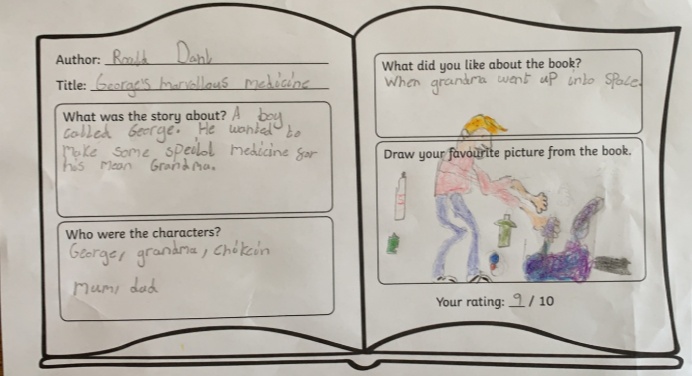 Author: Roald Dahl
Title: George's marvellous medicine
What was the story about? A boy
called George. He wanted to
make some speciol medicine for
his mean Grandma.
Who were the characters?
George, grandma, chikcin
Mum, dad
What did you like about the book?
When grandma went up into space.
Draw your favourite picture from the book.
Your rating: 9 / 10